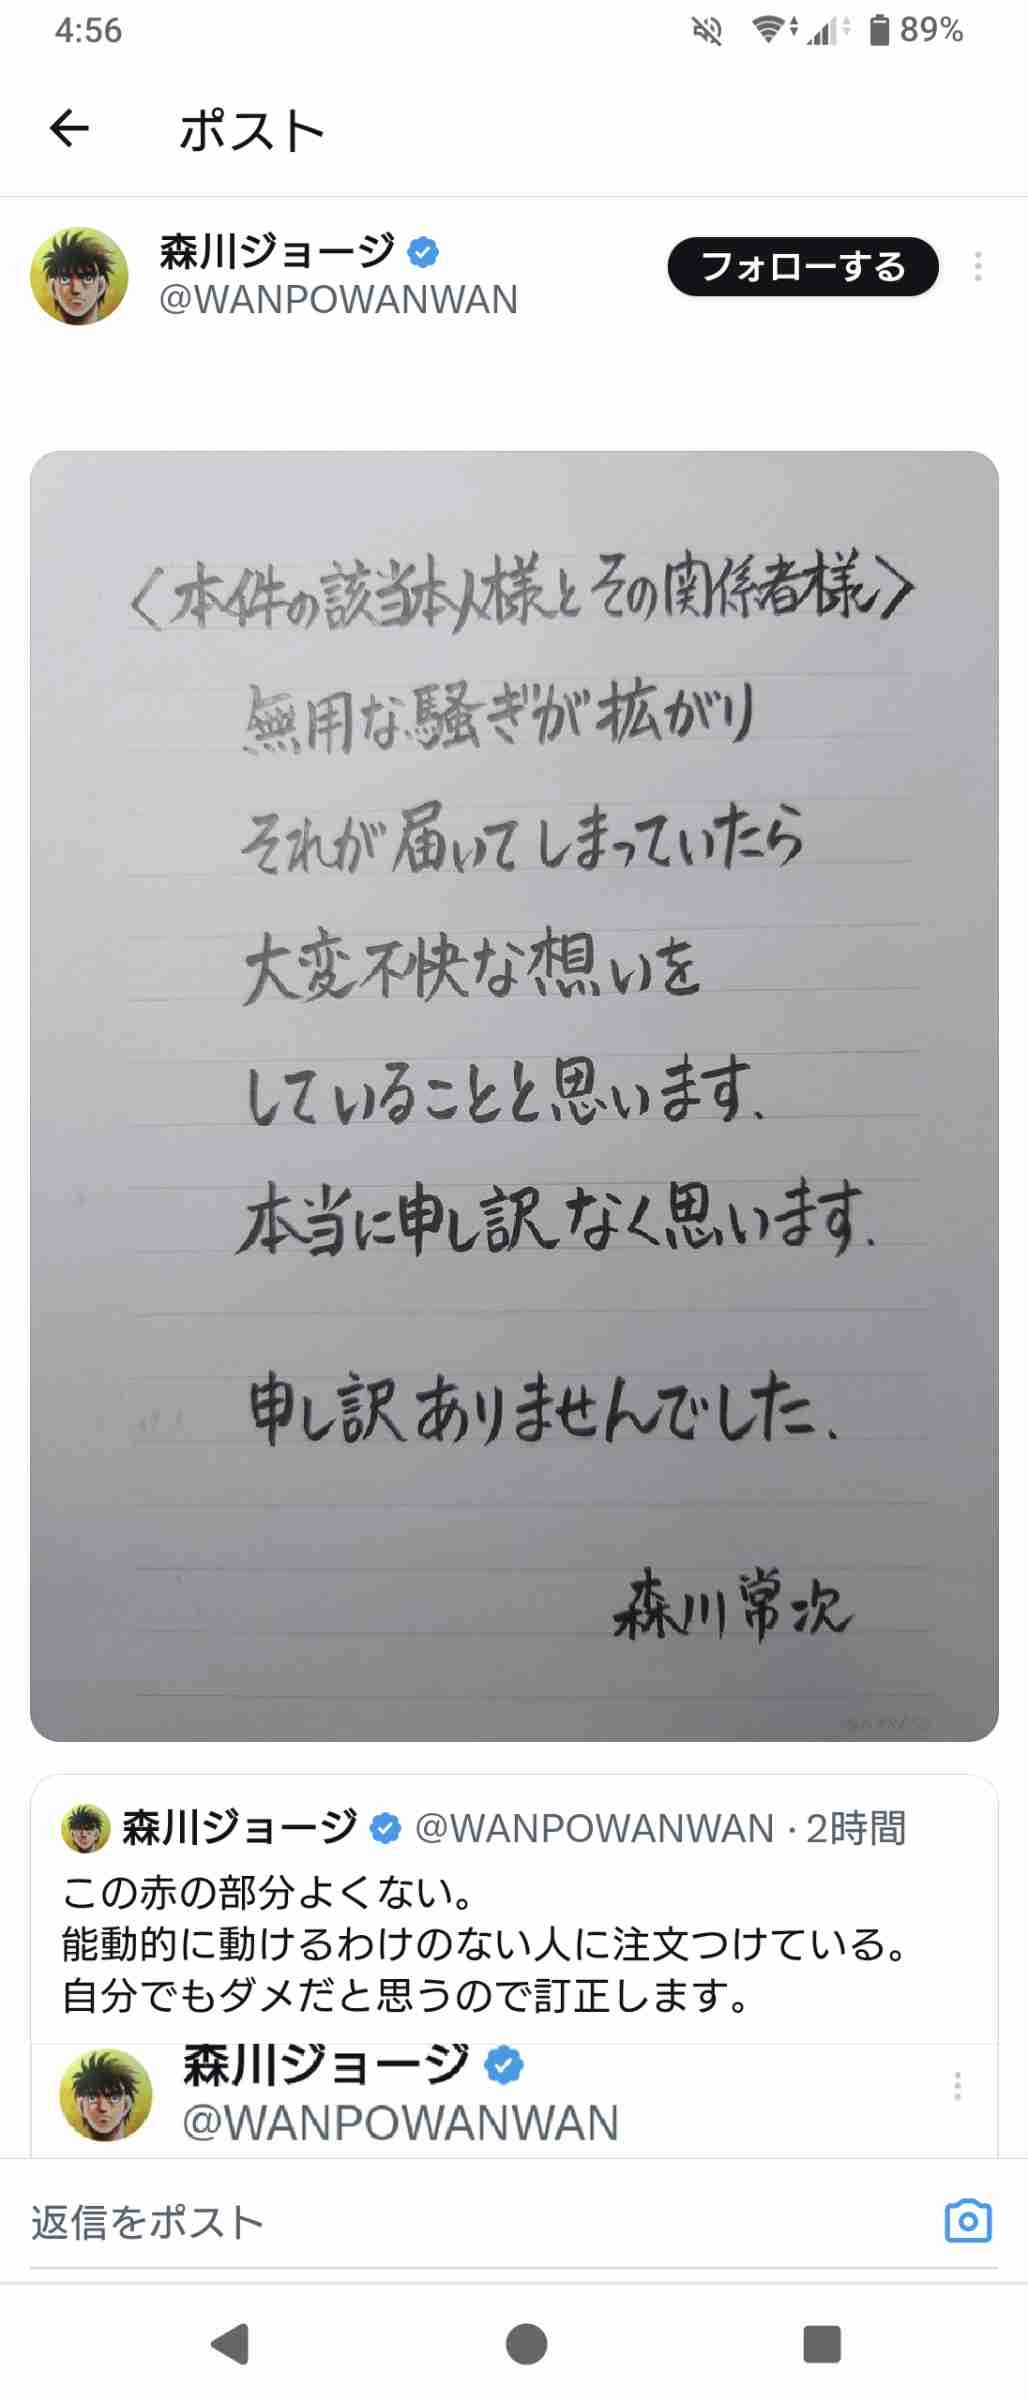 4:56
89%
ポスト
森川ジョージ
@WANPOWANWAN
フォローする
〈本件の該当本人様とその関係者様〉
無用な騒ぎが拡がり
それが届いてしまっていたら
大変不快な想いを
していることと思います、
本当に申し訳なく思います.
申し訳ありませんでした.
森川常次
森川ジョージ @WANPOWANWAN · 2時間
この赤の部分よくない。
能動的に動けるわけのない人に注文つけている。
自分でもダメだと思うので訂正します。
森川ジョージ
@WANPOWANWAN
返信をポスト